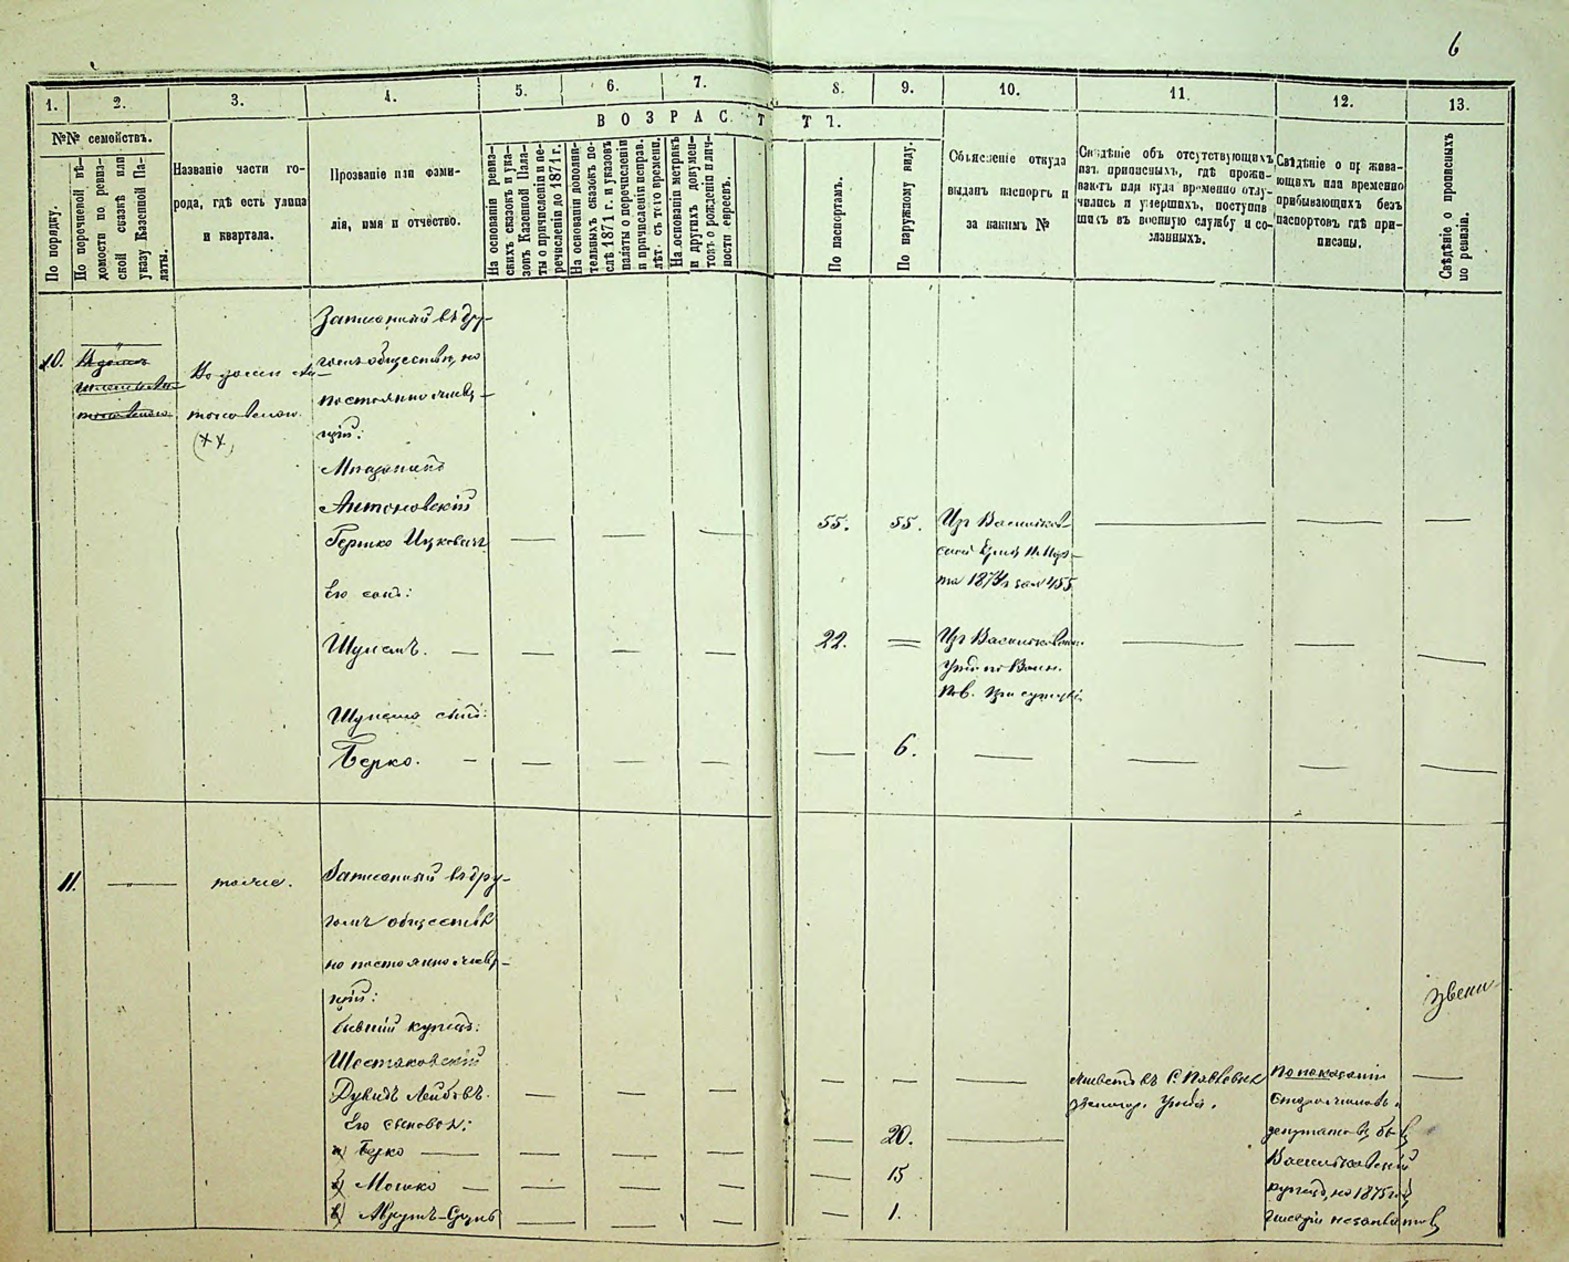 6
1. 2. 3. 4. 5. 6. 7. 8. 9. 10. 11. 12. 13.
№№ семействъ.
По порядку.
По перечневой вѣ-
домости по ревиз-
ской сказкѣ или
указу Казенной Па-
латы.
Названіе части го-
рода, гдѣ есть улица
и квартала.
Прозваніе или фами-
лія, имя и отчество.
ВОЗРАСТЪ.
На основаніи ревиз-
скихъ сказокъ и ука-
зовъ Казенной Пала-
ты о причисленіи и пе-
речисленіи до 1871 г.
На основаніи дополни-
тельныхъ сказокъ по-
слѣ 1871 г. и указовъ
палаты о перечисленіи
и причисленіи неправ.
лѣт. съ того времени.
На основаніи метрикъ
и другихъ докумен-
товъ о рожденіи и лич-
ности евреевъ.
По паспортамъ.
По наружному виду.
Объясненіе откуда
выданъ паспортъ и
за какимъ №
Свѣдѣніе объ отсутствующихъ
изъ приписныхъ, гдѣ прожи-
ваютъ или куда временно отлу-
чились и умершихъ, поступив-
шихъ въ военную службу и со-
сланныхъ.
Свѣдѣніе о прожива-
ющихъ или временно
прибывающихъ безъ
паспортовъ гдѣ при-
писаны.
Свѣдѣніе о прописныхъ
по ревизіи.
10.
Въ домѣ
(××)
Записанный въ дру-
гомъ обществѣ, но
постоянно живу-
щій:
Мѣщанинъ
Антоновскій
Гершко Ицковичъ
55. 55.
Изъ Васильков-
Его сынъ:
Шулимъ. 22.
Изъ Васильковскаго
Шулима сынъ:
Берко. 6.
11. тоже.
Записанный въ дру-
гомъ обществѣ
но постоянно живу-
щій:
бывшій купецъ:
Шестаковскій
Дувидъ Лейбовъ.
Живетъ въ С.
По показанію
Его сыновья:
а) Берко 20.
депутатовъ былъ
б) Мошко 15
Васильковскій
купецъ, но 1875 г.
в) 1.
гильдіи